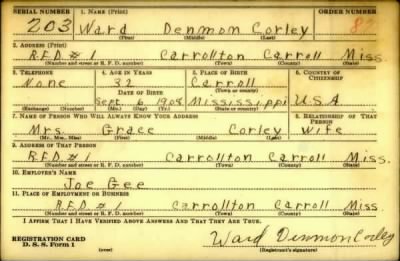 SERIAL NUMBER 1. NAME (Print) ORDER NUMBER
203 Ward Denmon Corley
(First) (Middle) (Last)
2. ADDRESS (Print)
R.F.D. # 1 Carrollton Carroll Miss.
(Number and street or R. F. D. number) (Town) (County) (State)
3. TELEPHONE 4. AGE IN YEARS 5. PLACE OF BIRTH 6. COUNTRY OF CITIZENSHIP
None 32 Carroll
DATE OF BIRTH (Town or county)
Sept. 6 1908 Mississippi U.S.A
(Exchange) (Number) (Mo.) (Day) (Yr.) (State or country)
7. NAME OF PERSON WHO WILL ALWAYS KNOW YOUR ADDRESS 8. RELATIONSHIP OF THAT PERSON
Mrs. Grace Corley Wife
(Mr., Mrs., Miss) (First) (Middle) (Last)
9. ADDRESS OF THAT PERSON
R.F.D. # 1 Carrollton Carroll Miss.
(Number and street or R. F. D. number) (Town) (County) (State)
10. EMPLOYER'S NAME
Joe Gee
11. PLACE OF EMPLOYMENT OR BUSINESS
R.F.D # 1 Carrollton Carroll Miss.
(Number and street or R. F. D. number) (Town) (County) (State)
I AFFIRM THAT I HAVE VERIFIED ABOVE ANSWERS AND THAT THEY ARE TRUE.
REGISTRATION CARD
D. S. S. Form 1 (over) Ward Denmon Corley
(Registrant's signature)